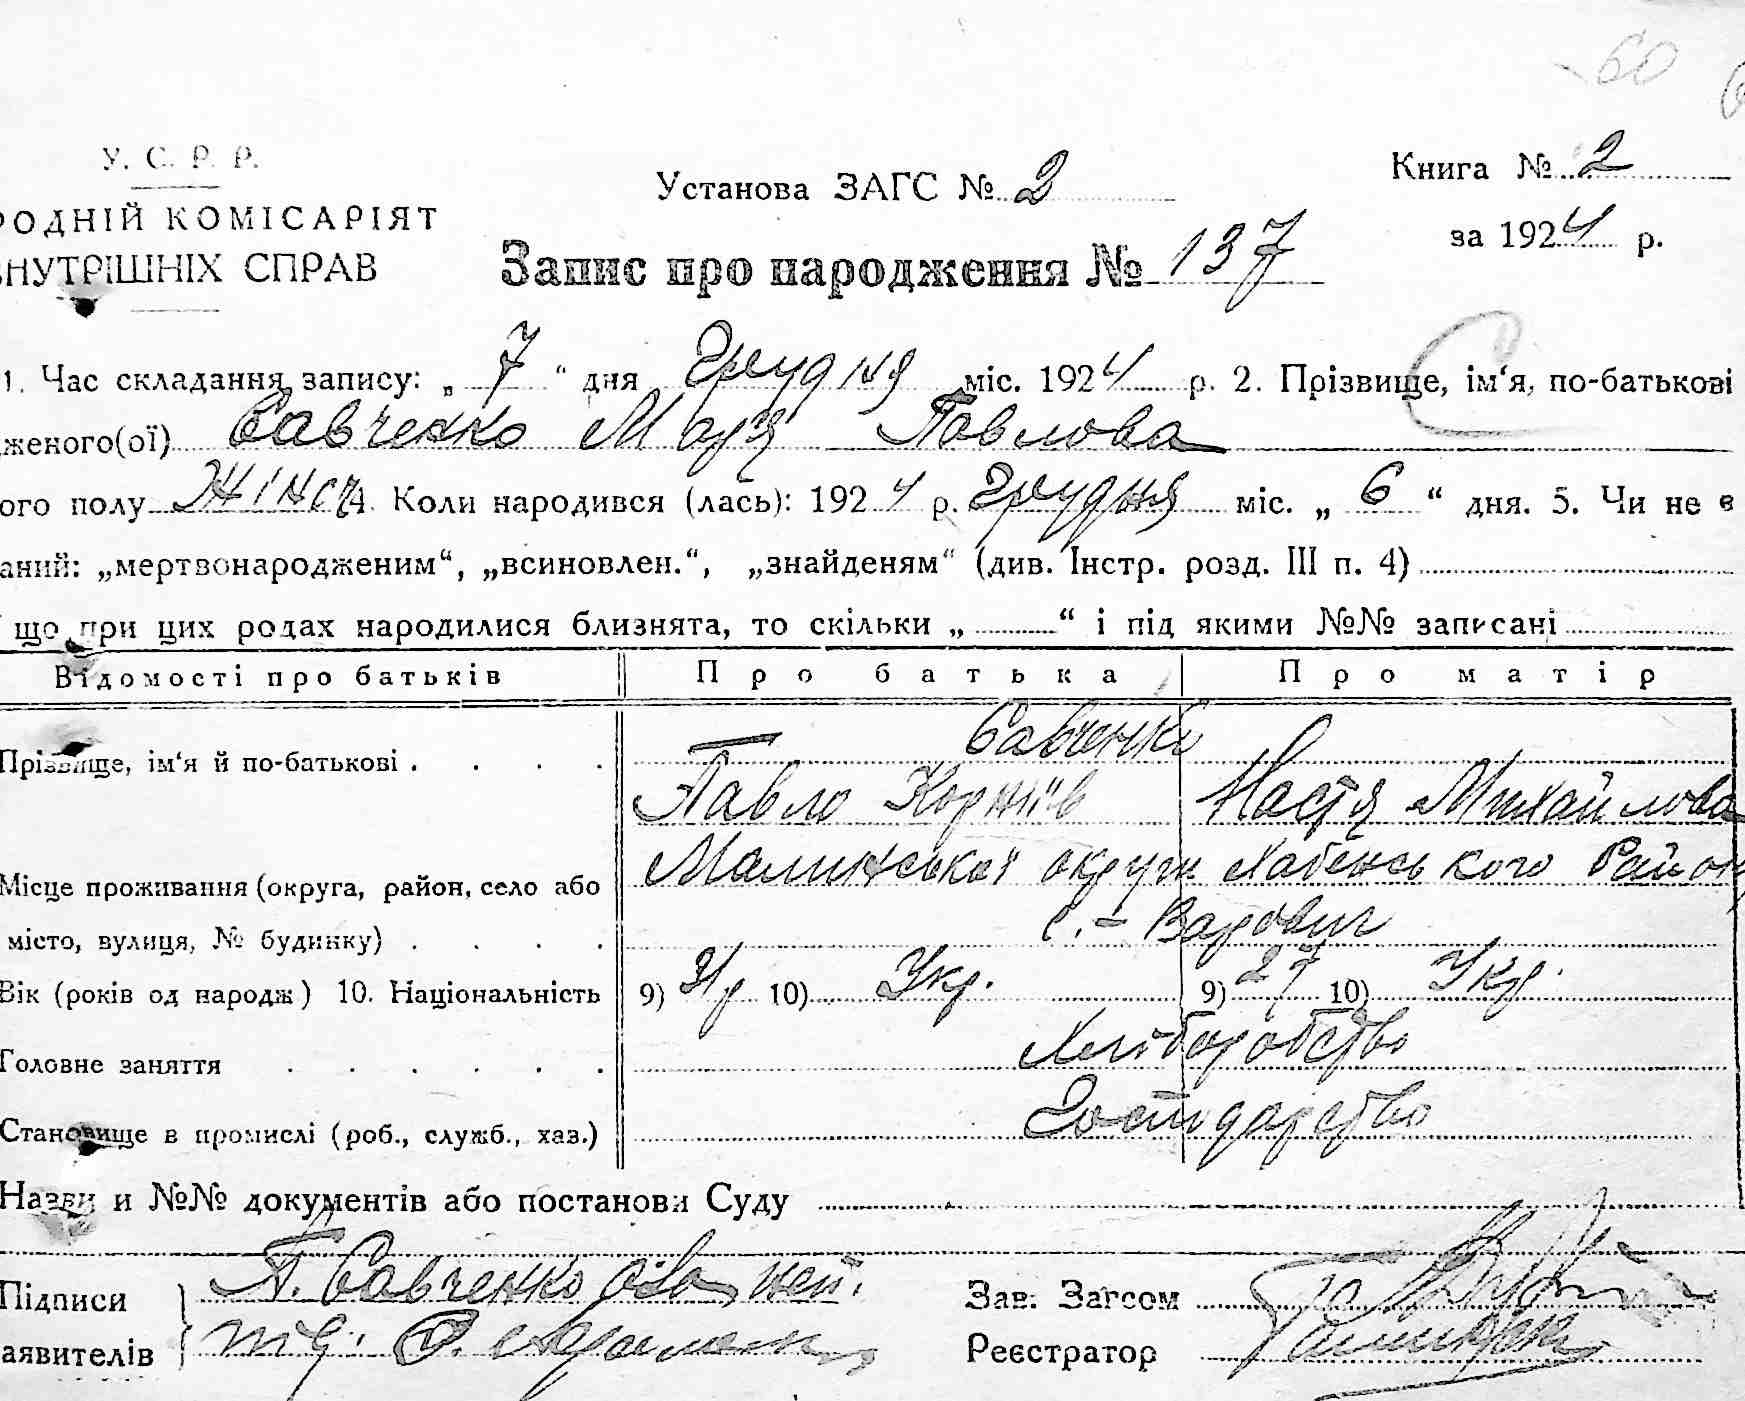 60
У. С. Р. Р.
РОДНІЙ КОМІСАРІЯТ
ВНУТРІШНІХ СПРАВ
Установа ЗАГС № 2
Книга № 2
за 1924 р.
Запис про народження № 137
1. Час складання запису: „ 7 “ дня Грудня міс. 1924 р. 2. Прізвище, ім‘я, по-батькові
женого(ої) Савченко Марія Павлова
ого полу Жіноч 4. Коли народився (лась): 1924 р. Грудня міс. „ 6 “ дня. 5. Чи не є
аний: „мертвонародженим“, „всиновлен.“, „знайденям“ (див. Інстр. розд. III п. 4)
що при цих родах народилися близнята, то скільки „ “ і під якими №№ записані
Відомості про батьків Про батька Про матір
Савченки
Прізвище, ім‘я й по-батькові
Павло Корніїв Настя Михайлова
Малинської округи Хабенського Району
Місце проживання (округа, район, село або
місто, вулиця, № будинку) с. - Варовичі
Вік (років од народж) 10. Національність 9) 31 р 10) Укр. 9) 27 10) Укр.
Головне заняття Хліборобство
Становище в промислі (роб., служб., хаз.) Господарство
Назви и №№ документів або постанови Суду
Підписи П. Савченко
аявителів
Зав. Загсом
Реєстратор